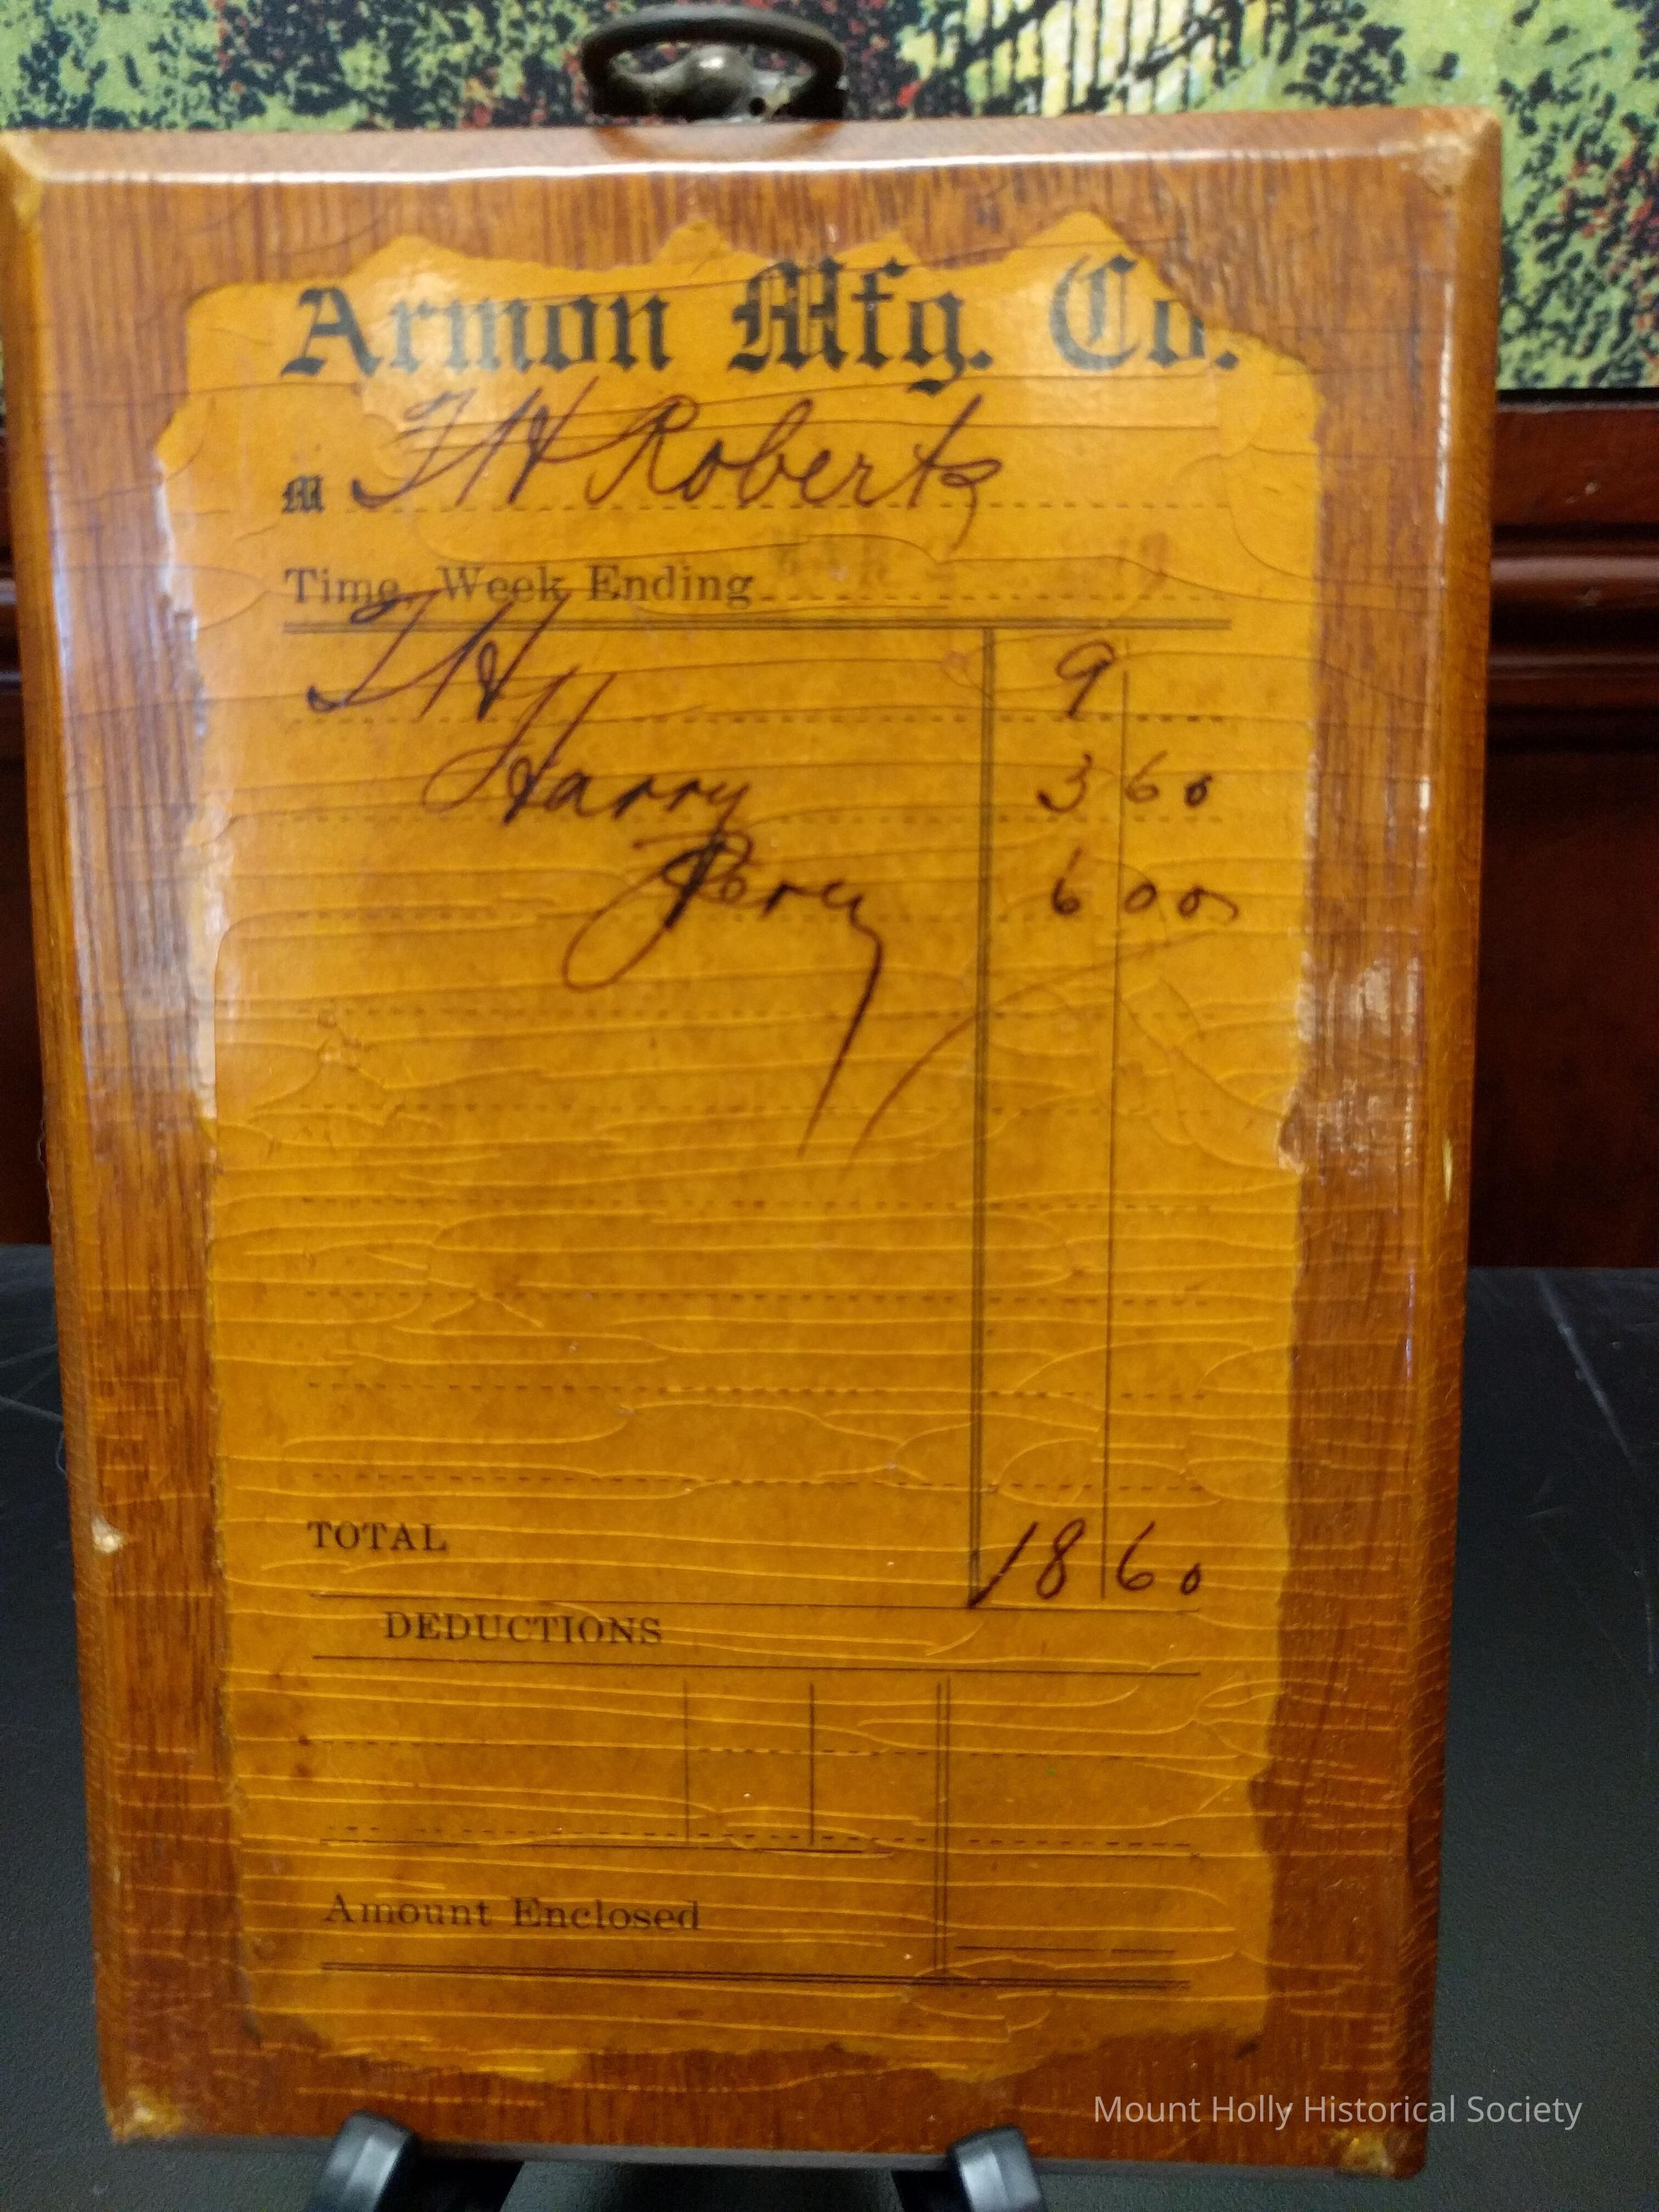 Armon Mfg. Co.
M T H Roberts
Time, Week Ending
T H 9
Harry 3 60
Percy 6 00
TOTAL 18 60
DEDUCTIONS
Amount Enclosed
Mount Holly Historical Society